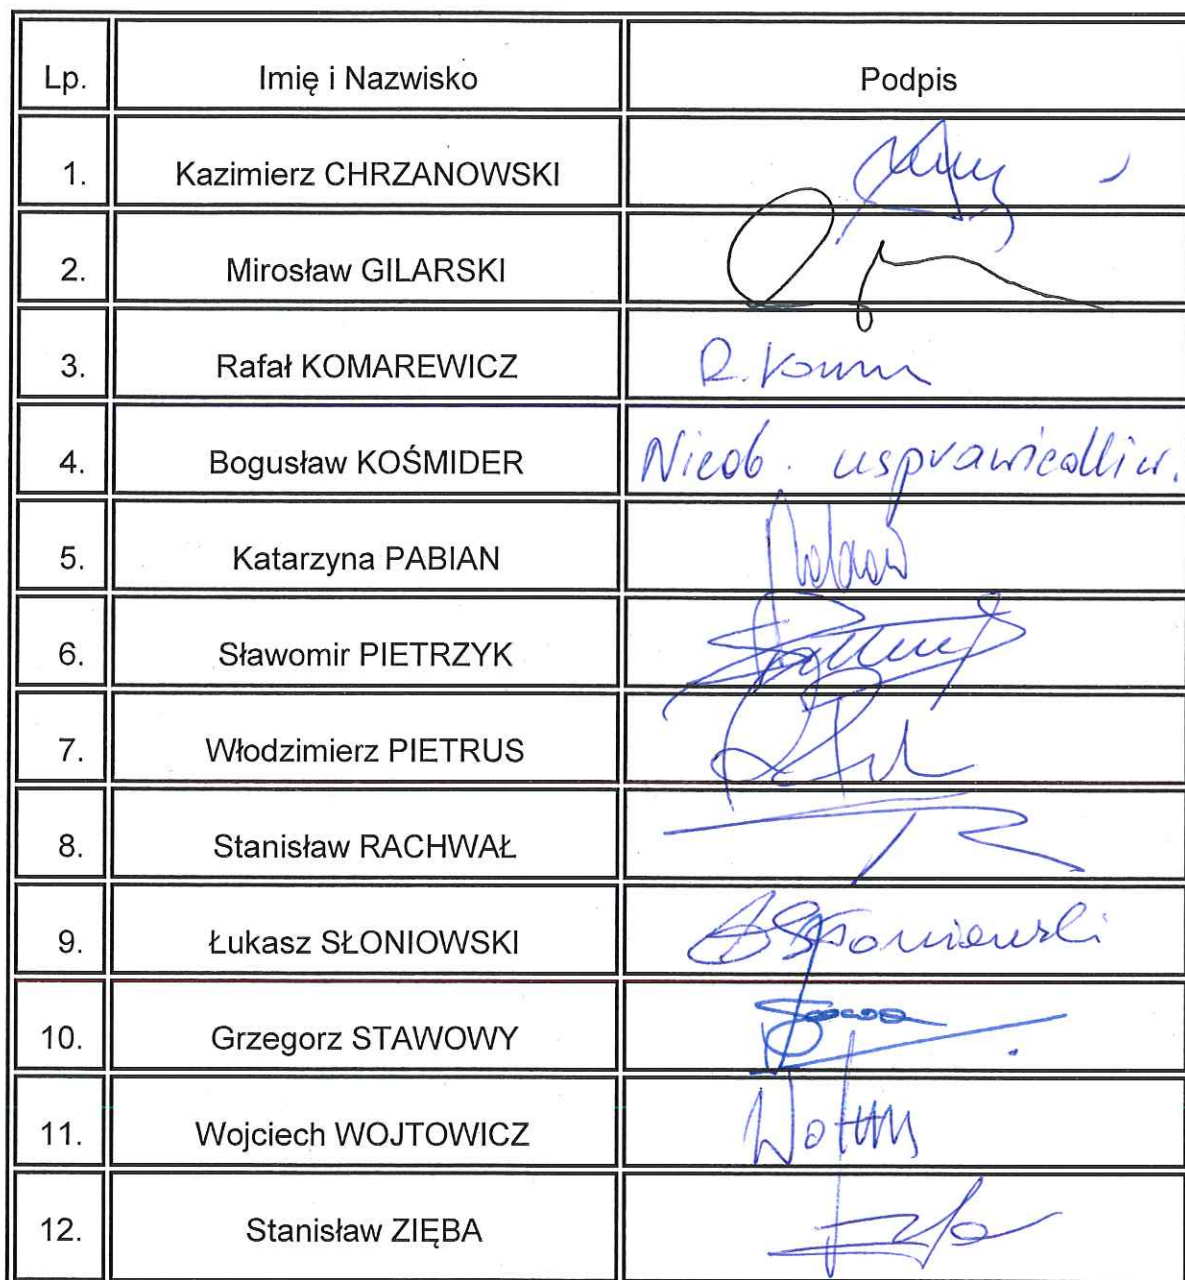 Lp. Imię i Nazwisko Podpis
1. Kazimierz CHRZANOWSKI
2. Mirosław GILARSKI
3. Rafał KOMAREWICZ R.
4. Bogusław KOŚMIDER Nieob. usprawiedliw.
5. Katarzyna PABIAN
6. Sławomir PIETRZYK
7. Włodzimierz PIETRUS
8. Stanisław RACHWAŁ
9. Łukasz SŁONIOWSKI Słoniowski
10. Grzegorz STAWOWY
11. Wojciech WOJTOWICZ
12. Stanisław ZIĘBA